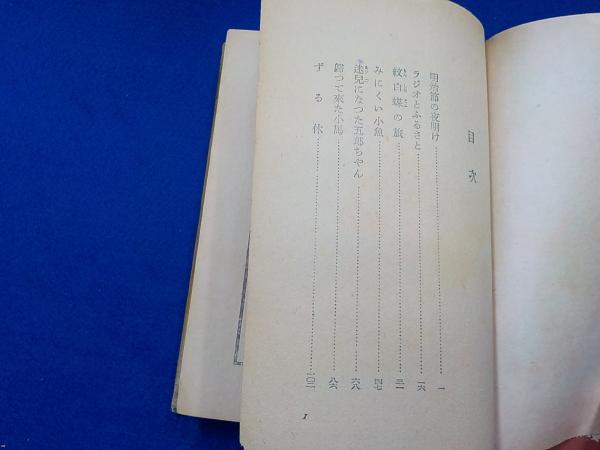 目次
明治節の夜明け……一
ラジオとふるさと……一六
紋白蝶の旅……三一
みにくい小魚……四七
迷兒になつた五郎ちやん……六八
歸つて來た小馬……八六
ずる休……一〇一
1